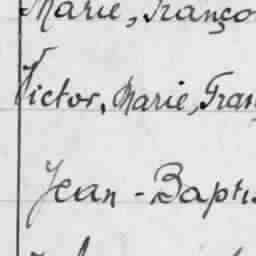 Marie, Franço
Victor, Marie, Fran
Jean-Baptis